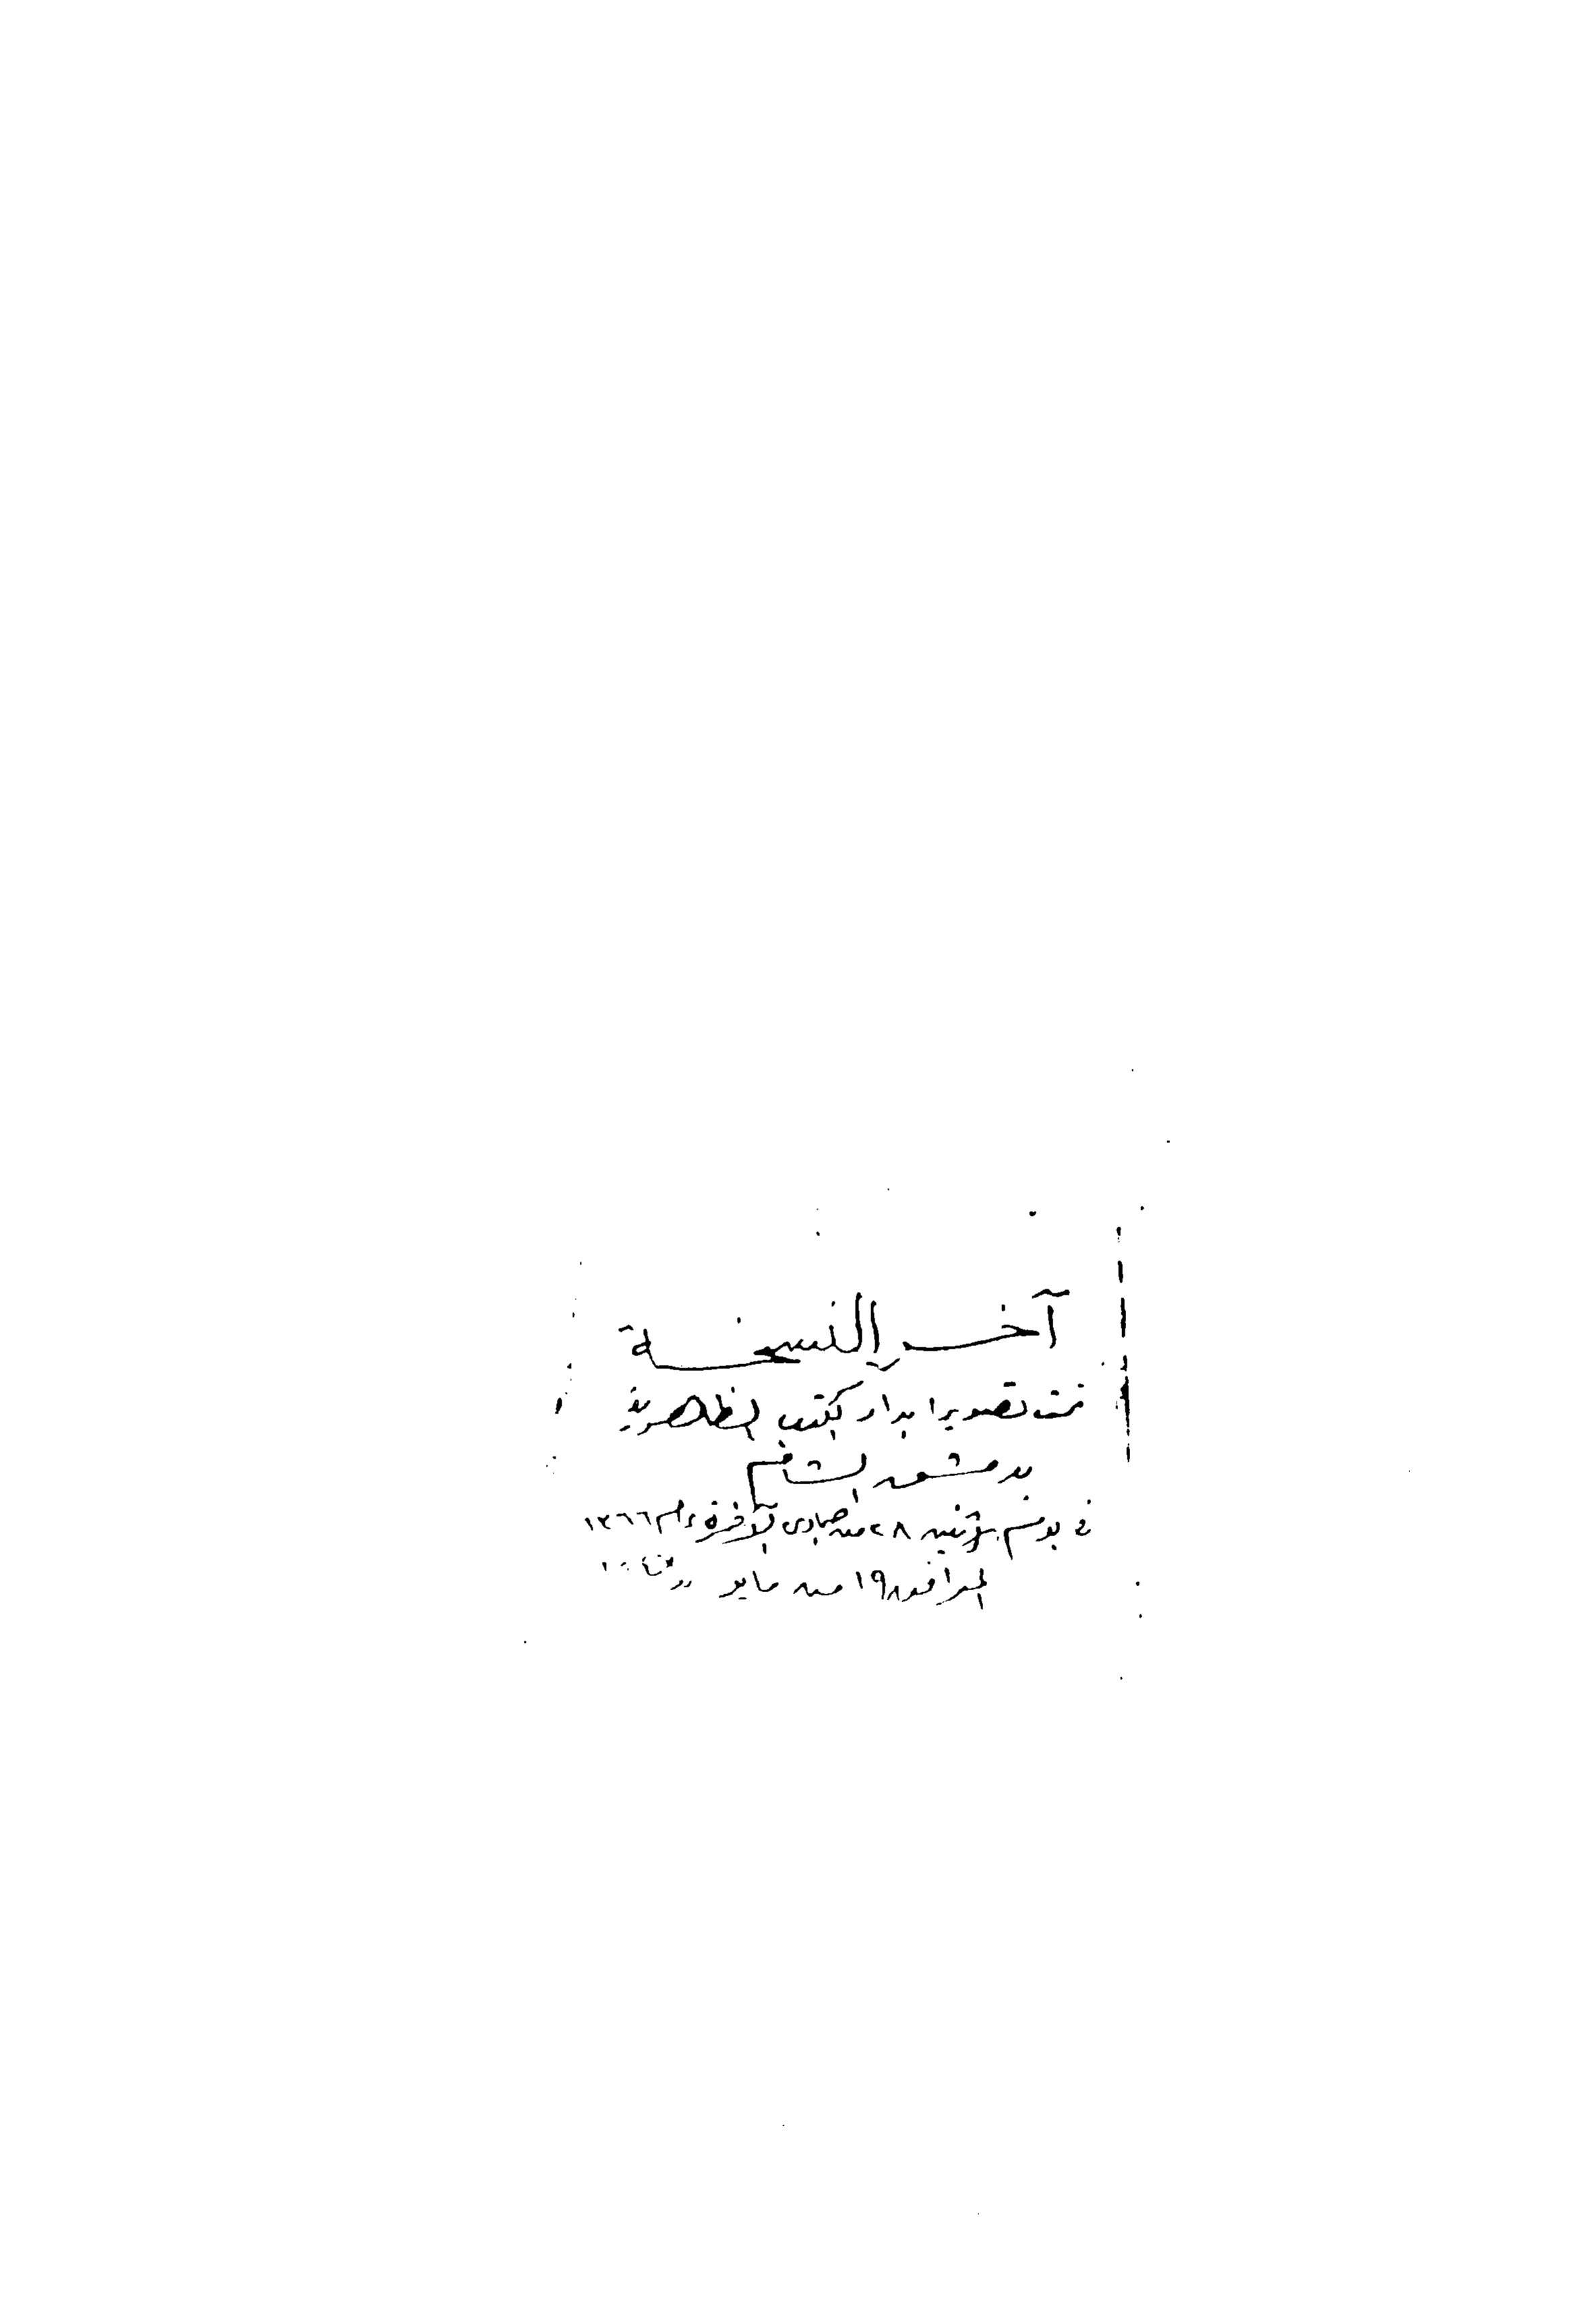 آخر النسخة
تمت تصويرا بدار الكتب الظاهرية
بدمشق الشام
في يوم الاثنين ٢٨ من جمادى الآخرة عام ١٣٦٦
الموافق ١٩ من مايو